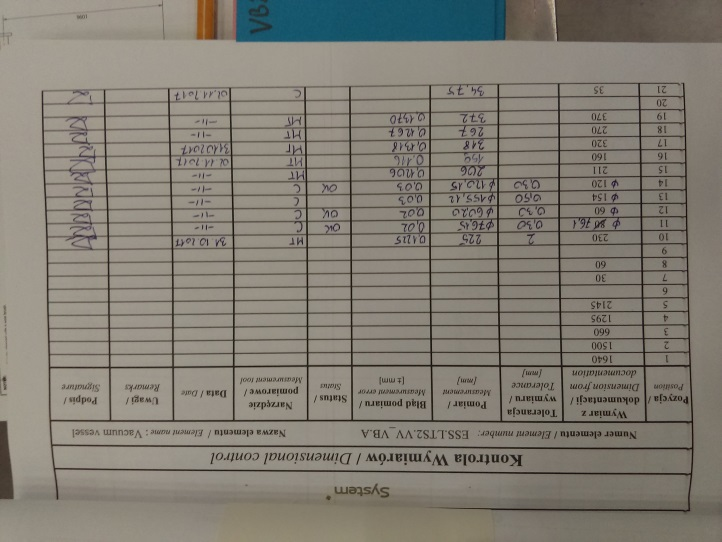 System
Kontrola Wymiarów / Dimensional control
Numer elementu / Element number: ESS.LTS2.VV_VB.A Nazwa elementu / Element name: Vacuum vessel
Pozycja / Position Wymiar z dokumentacji / Dimension from documentation Tolerancja wymiaru / Tolerance [mm] Pomiar / Measurement [mm] Błąd pomiaru / Measurement error [± mm] Status / Status Narzędzie pomiarowe / Measurement tool Data / Date Uwagi / Remarks Podpis / Signature
1 1640
2 1500
3 660
4 1295
5 2145
6
7 30
8 60
9
10 230 2 225 0,1215 MT 31.10.2017
11 76,1 0,30 φ76,15 0,02 OK C -11-
12 φ 60 0,30 φ60,20 0,02 OK C -11-
13 φ 154 0,50 φ155,12 0,03 C -11-
14 φ 120 0,30 φ120,15 0,03 OK C -11-
15 211 206 0,1206 MT -11-
16 160 159 0,116 MT 02.11.2017
17 320 318 0,1318 MT 31.10.2017
18 270 267 0,1267 MT -11-
19 370 372 0,1370 MT -11-
20
21 35 34,75 C 02.11.2017
VB